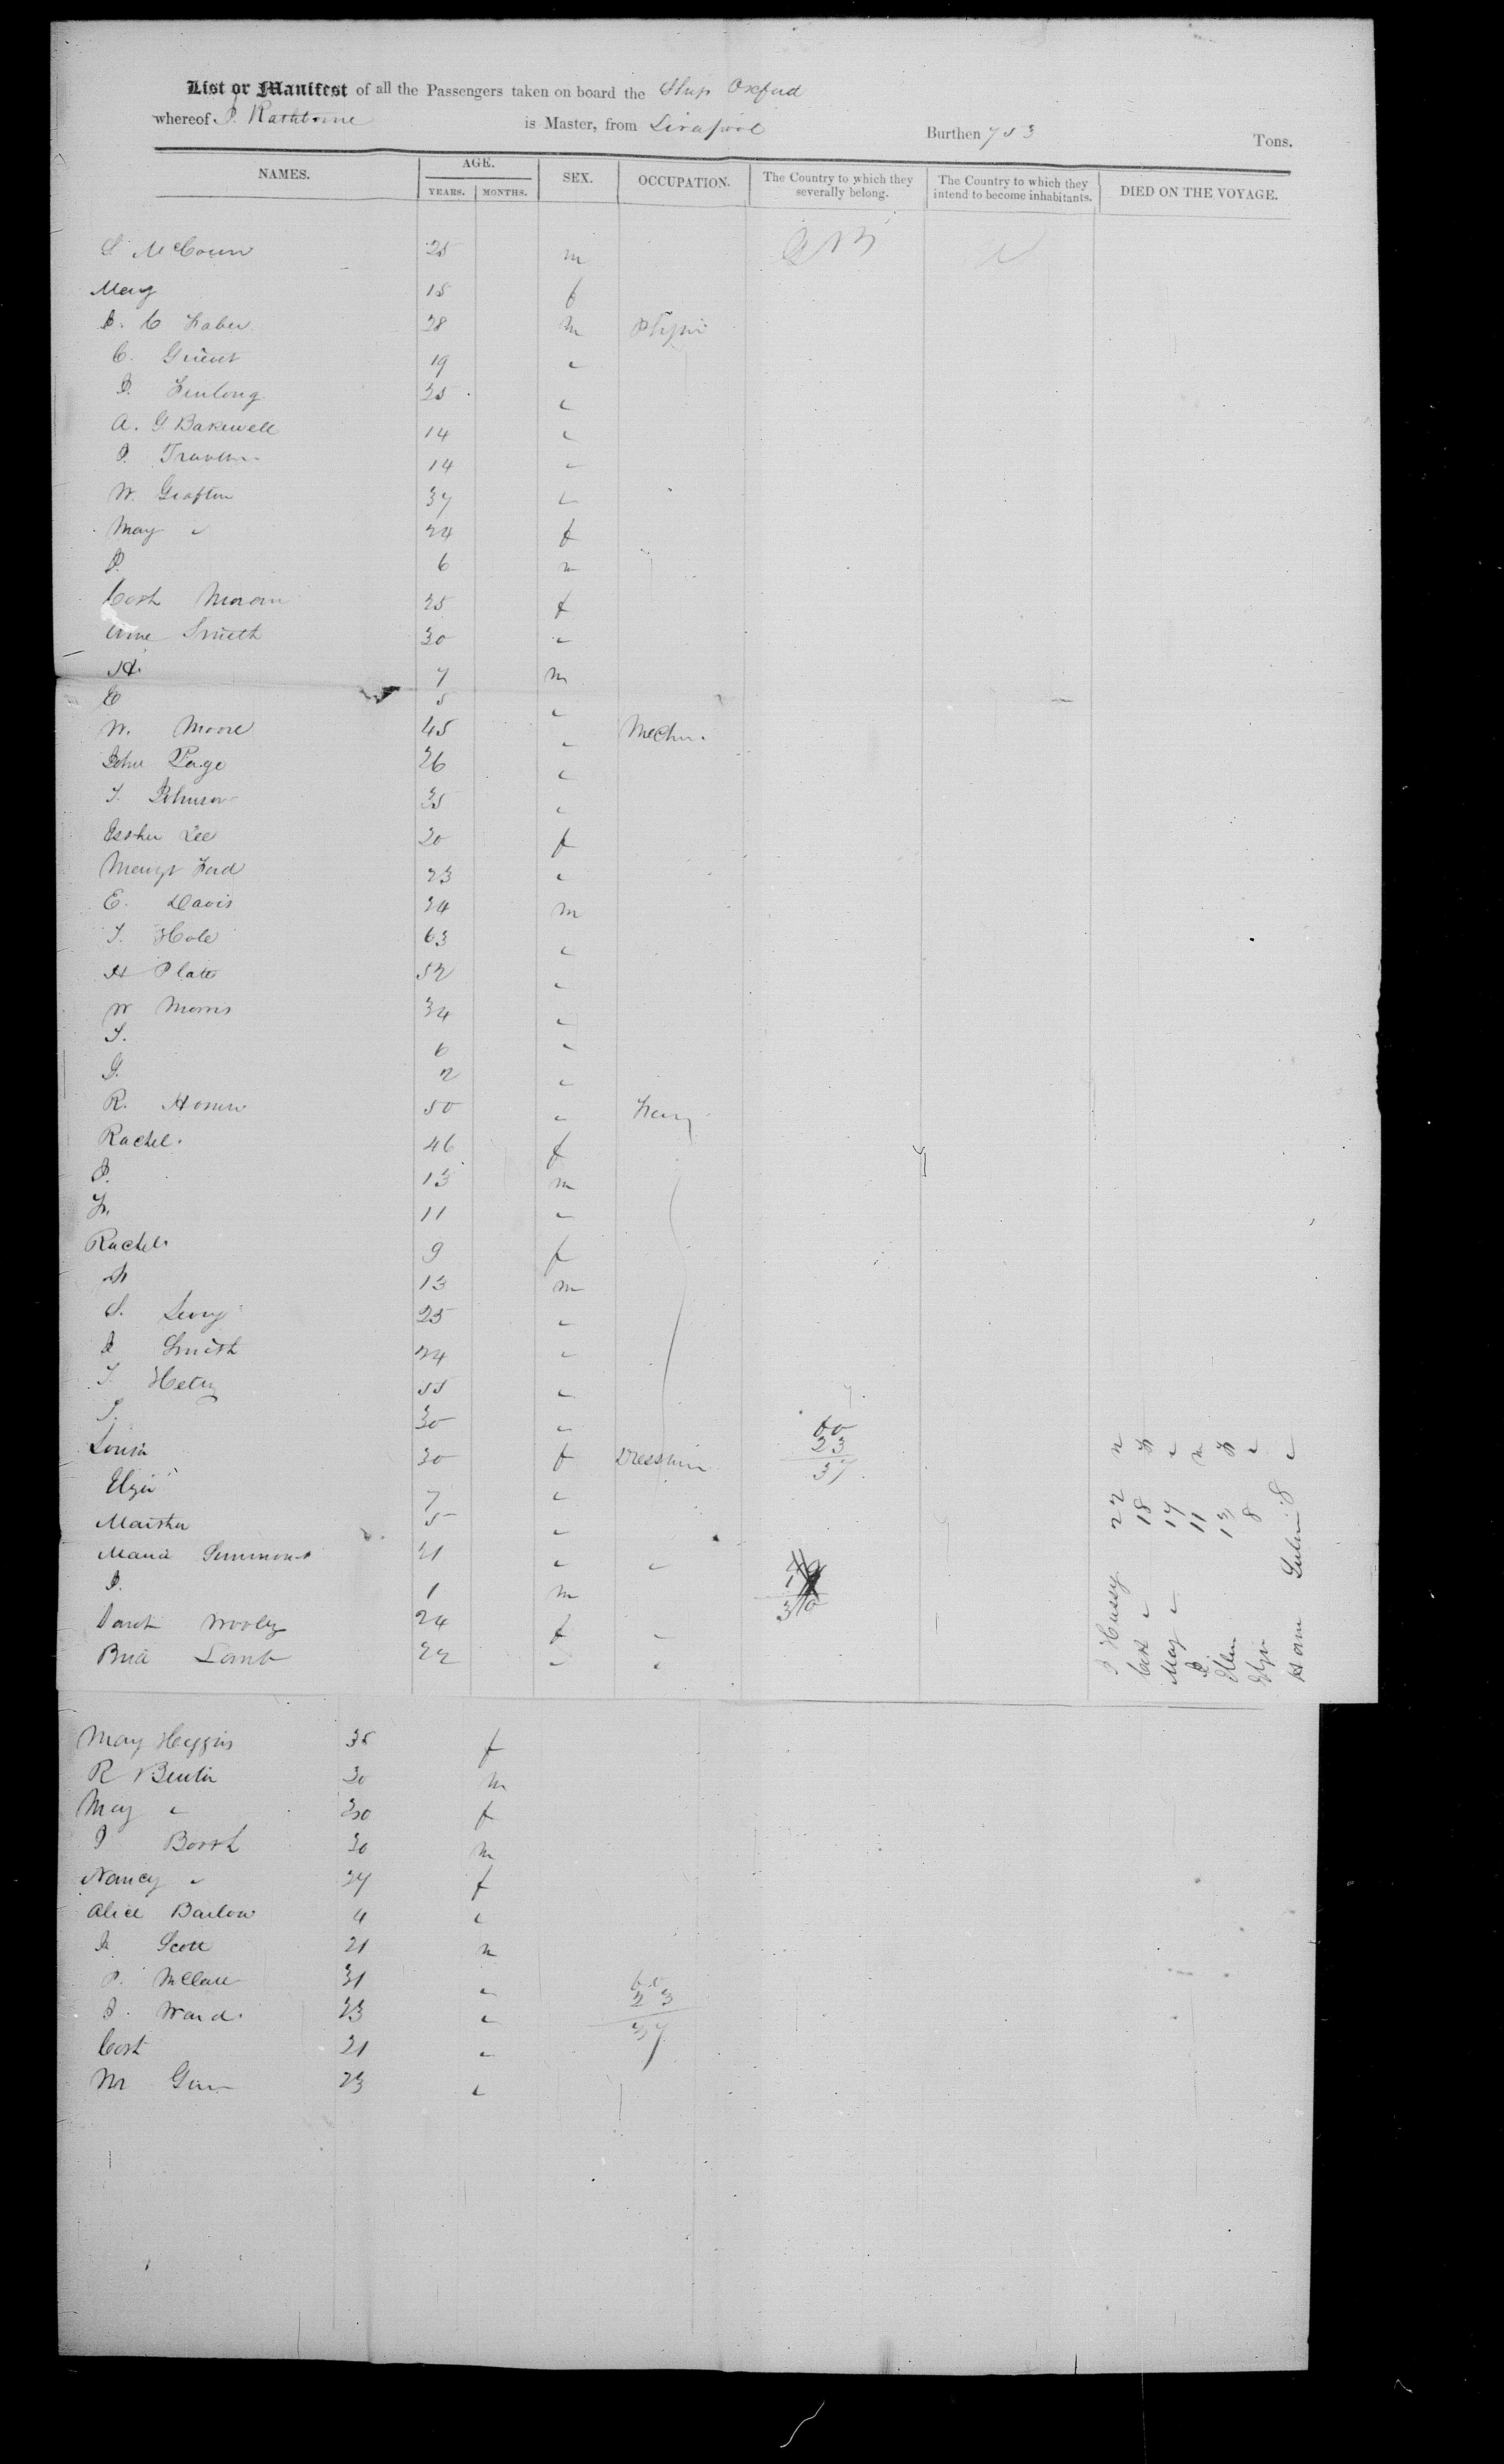 List or Manifest of all the Passengers taken on board the Ship Oxford
whereof J. Rathbone is Master, from Liverpool Burthen 753 Tons.
NAMES. AGE. YEARS. MONTHS. SEX. OCCUPATION. The Country to which they severally belong. The Country to which they intend to become inhabitants. DIED ON THE VOYAGE.
S McCown 25 m GB
Mary 15 f
J. C Faber 28 m
C. 19 "
J. Furlong 25 "
A. G. Bakewell 14 "
J. 14 "
W. Grafton 37 "
Mary " 24 f
J. 6 m
Cath Moran 25 f
Ann Smith 30 "
H. 7 m
E 5 "
W. Moore 45 " Mechn.
John Page 26 "
T. Johnson 35 "
Esther Lee 20 f
Margt Ford 23 "
E. Davis 34 m
T. Hole 63 "
H Platt 52 "
W Morris 34 "
T. 6 "
G. 2 "
R. 50 "
Rachel. 46 f
J. 13 m
F. 11 "
Rachel. 9 f
13 m
S. 25 "
J Smith 24 "
T. 55 "
T. 30 "
Louisa 30 f
Eliza 7 "
Martha 5 "
Maria Simmons 21 " "
J. 1 m
Sarah Wooley 24 f "
Lamb 22 " "
60
23
37
J Hussey 22 m
Cath " 18 f
Mary " 17 "
J. 11 m
Ellen 13 f
Eliza 8 "
8 "
Mary Higgins 35 f
R 30 m
Mary " 30 f
J Booth 30 m
Nancy " 27 f
Alice Barlow 4 "
J. Scott 21 m
P. McClare 31 "
J. Ward. 23 "
Cath 21 "
23 "
60
23
37